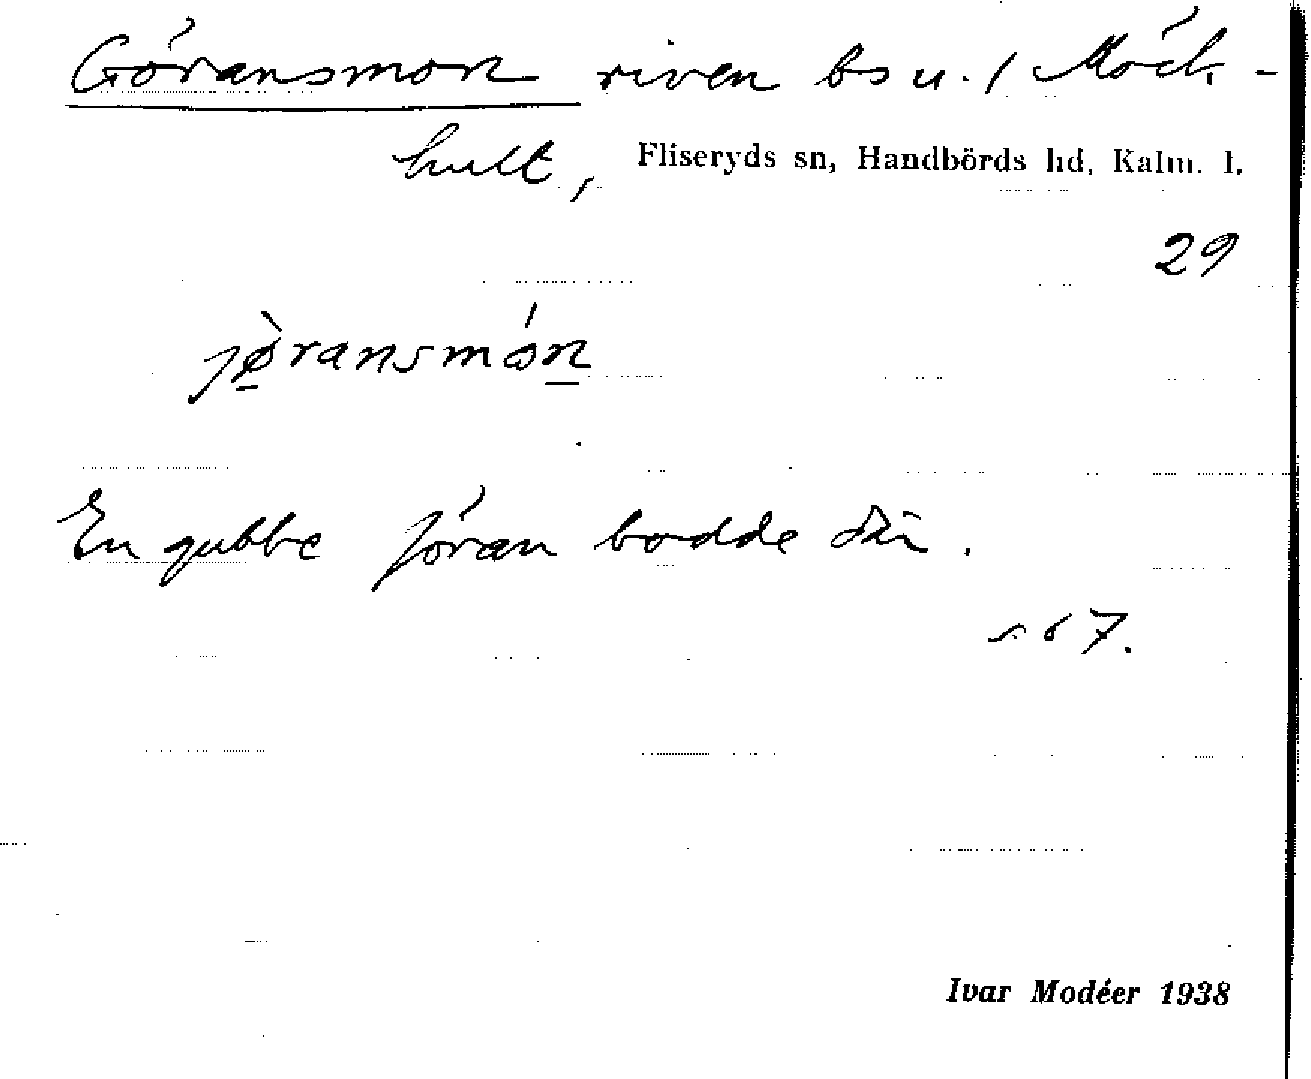 Göransmon riven bs u. / Möck-
hult, Fliseryds sn, Handbörds hd, Kalm. l.
29
jø̀ransmón
En gubbe Jöran bodde där.
s. 67.
Ivar Modéer 1938